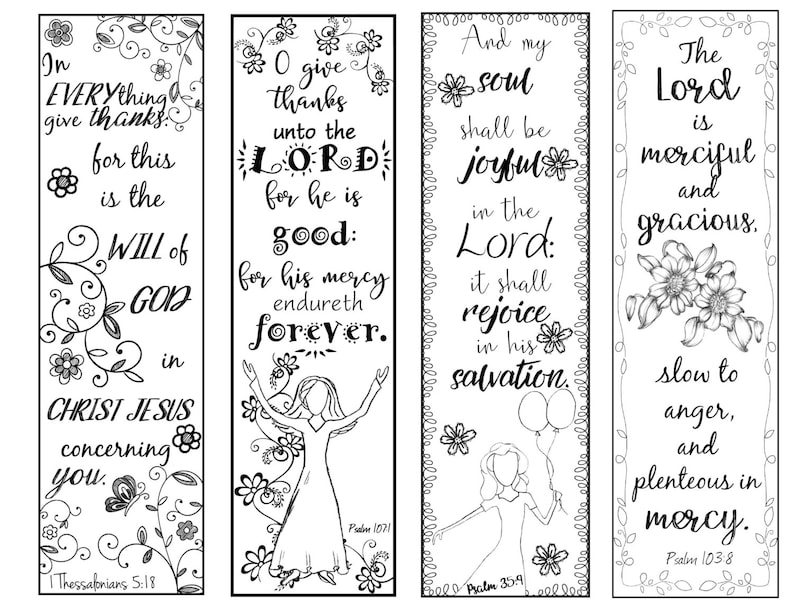 In
EVERYthing
give thanks:
for this
is the
WILL of
GOD
in
CHRIST JESUS
concerning
you.
1 Thessalonians 5:18
O give
thanks
unto the
LORD
for he is
good:
for his mercy
endureth
forever.
Psalm 107:1
And my
soul
shall be
joyful
in the
Lord:
it shall
rejoice
in his
salvation.
Psalm 35:9
The
Lord
is
merciful
and
gracious,
slow to
anger,
and
plenteous in
mercy.
Psalm 103:8